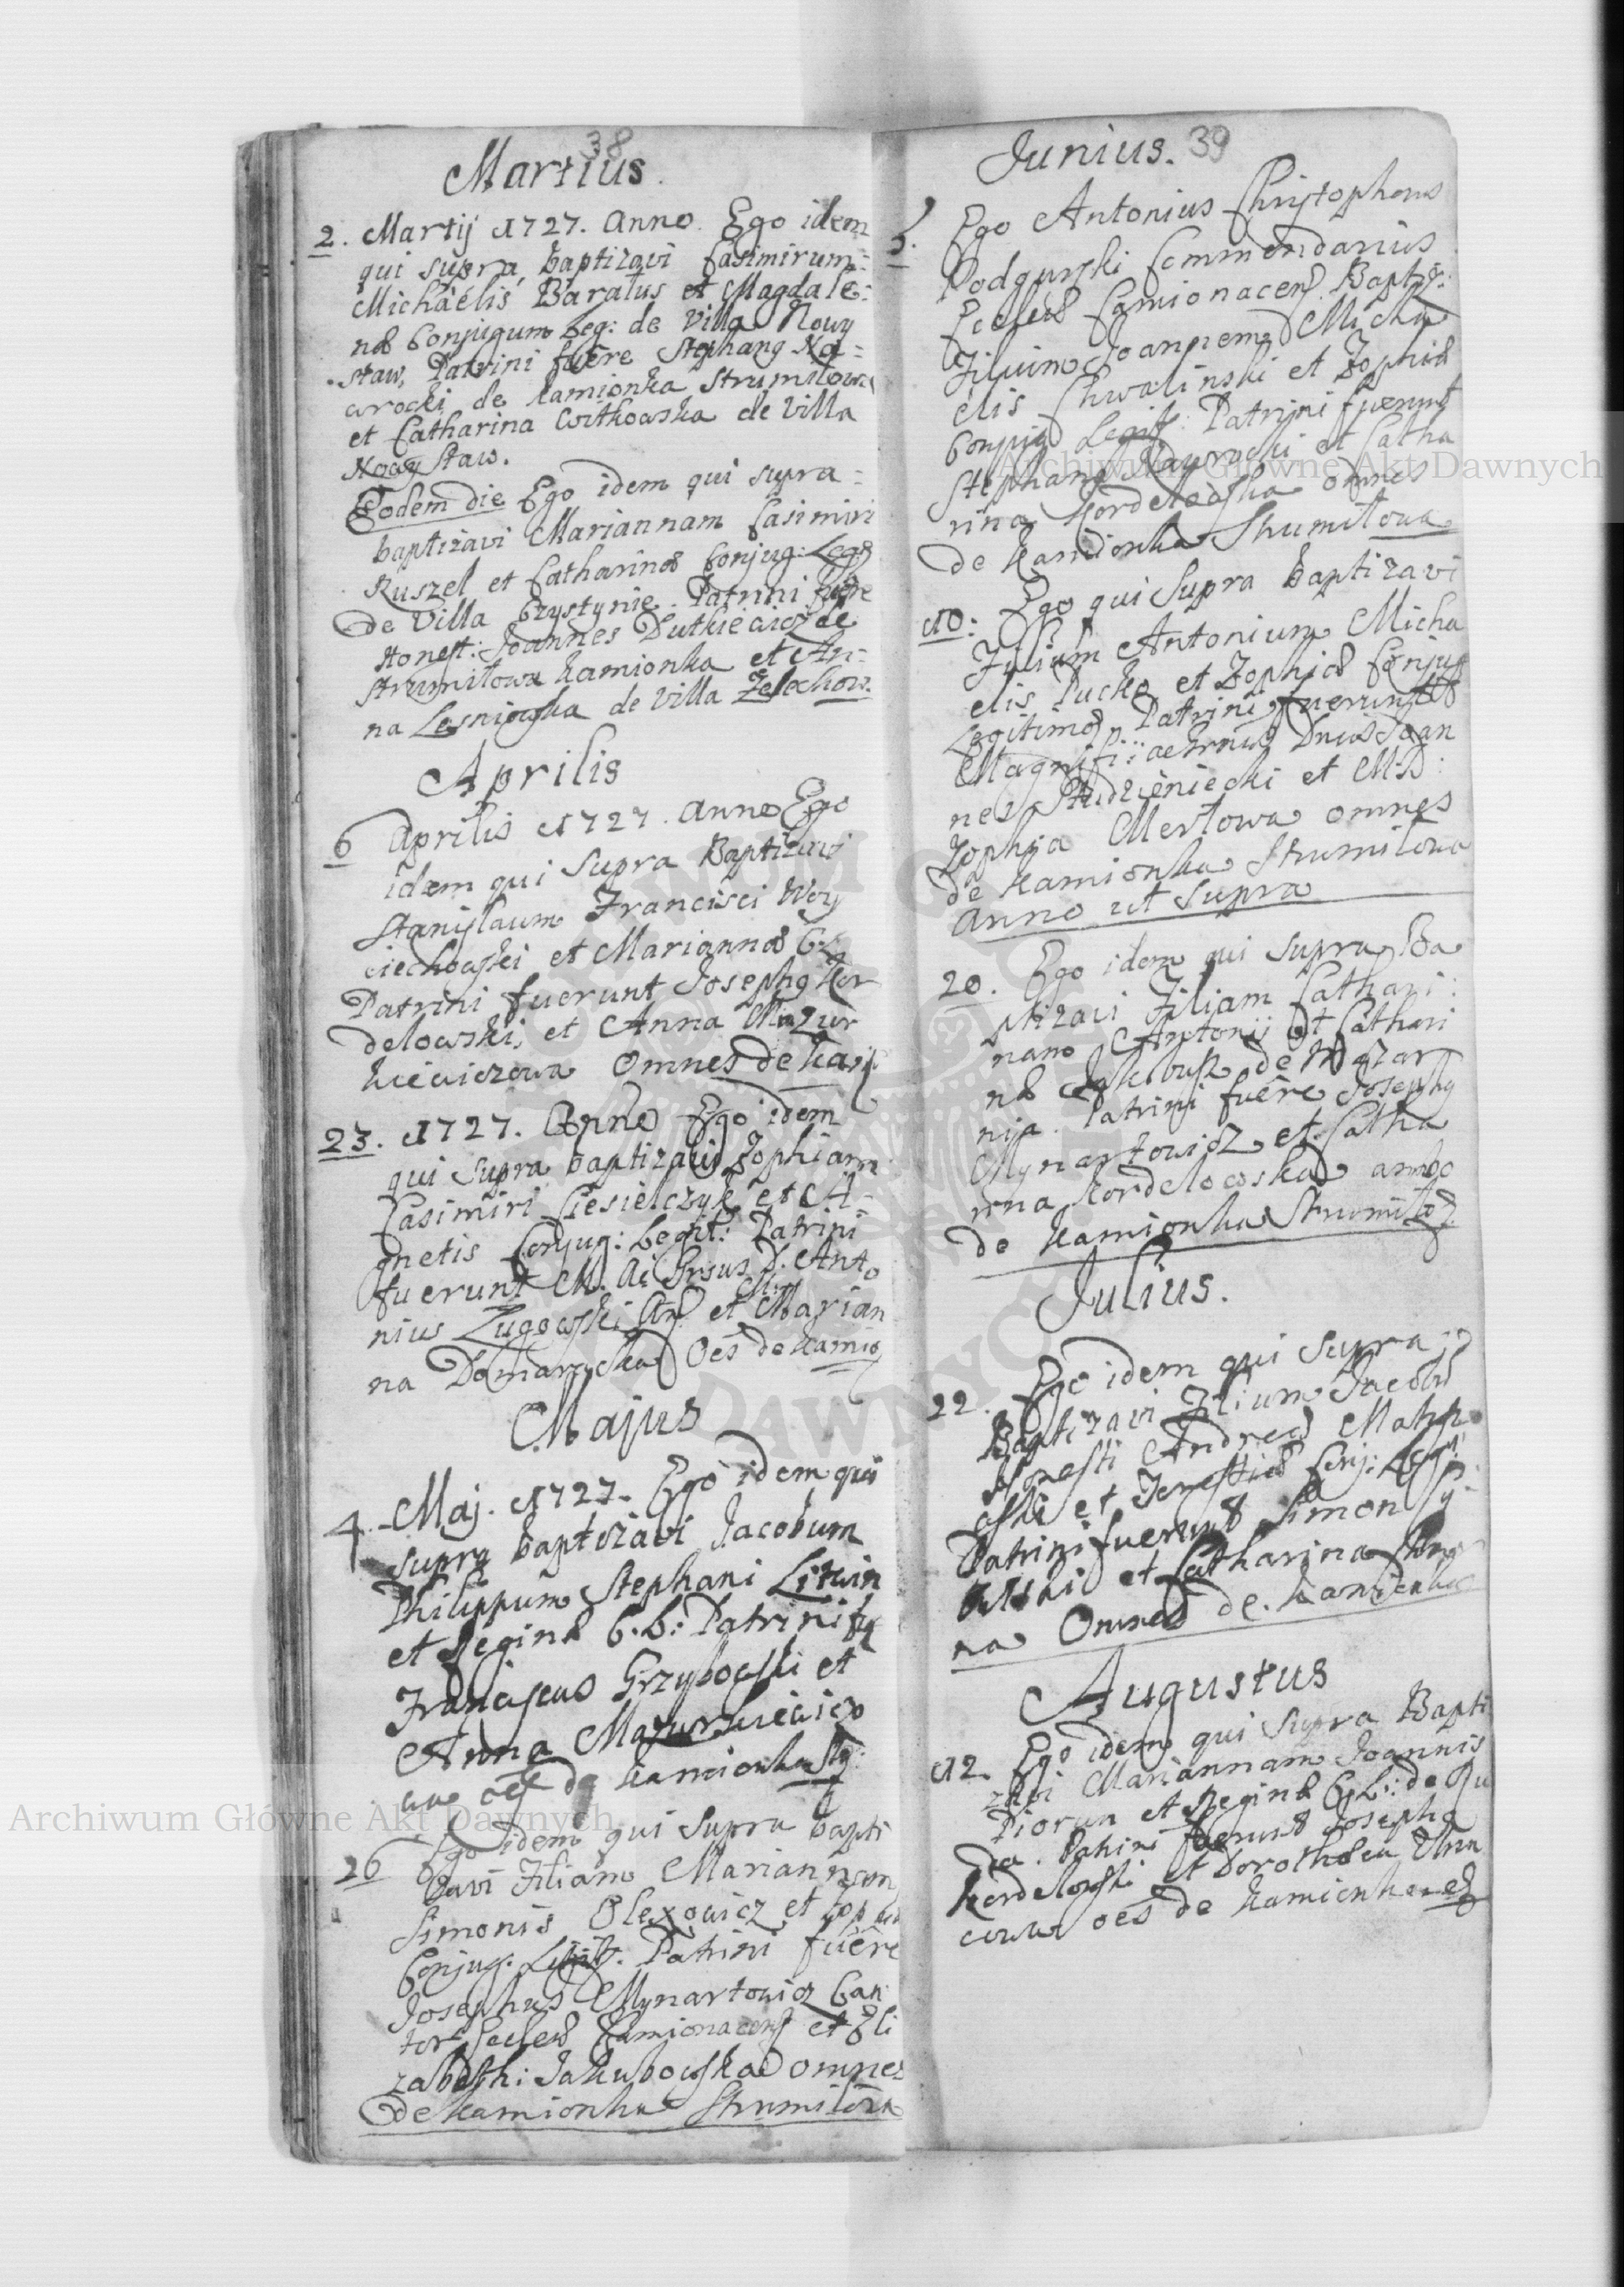 38
Martius.
2. Martij 1727. Anno. Ego idem
qui supra baptizavi Casimirum
Michaelis Baratus et Magdale=
næ Conjugum Leg: de Villa Nowy
staw, Patrini fuere Stephang Na=
wrocki de Kamionka Strumilowa
et Catharina Witkowska de Villa
Nowy Staw.
Eodem die Ego idem qui supra
baptizavi Mariannam Casimiri
Ruszel et Catharinæ Conjug: Leg:
De Villa Czystynie. Patrini fuere
Honest: Joannes Dutkiewicz de
Strumilowa Kamionka et An=
na Lesniowska de Villa Zelechow.
Aprilis
6 Aprilis 1727. Anno Ego
idem qui Supra Baptizavi
Stanislaum Francisci Woy
ciechowski et Mariannæ
Patrini fuerunt Josephg Kor
delowski, et Anna Mazur
kiewiczowa Omnes de Kam
23. 1727. Anno Ego idem
qui supra baptizavi Zophiam
Casimiri Ciesielczyk et A=
gnetis Conjug: Legit: Patrini
fuerunt M. Anto
nius Zugowski et Marian
na Domarzycka Oes de Kamio
Majus
4 Maj. 1727. Ego idem qui
supra baptizavi Jacobum
Philippum Stephani Litwin
et Reginæ C. L: Patrini
Franciscus Grzybowski et
Anna Mazurkiewiczo
wa oes de Kamionka Str:
26 Ego idem qui Supra bapti
zavi Filiam Mariannam
Simonis Olexowicz et
Conjug. Patrini fuêre
Josephus Mynartowicz Can
tor Eccles Kamionacens et Eli
zabeth: Jakubowska omnes
de Kamionka Strumilowa
Junius. 39
Ego Antonius Christophorus
Podgurski Commendarius
Eccles Camionacens. Baptiz:
Filium Joannem Micha
elis Chwalinski et Zophiæ
Legit: Patrini fuerunt
Stephang Nawrocki et Catha
rina Kordelowska omnes
de Kamionka Strumilowa
10: Ego qui Supra baptizavi
Filium Antonium Micha
elis Pucko et Zophiæ Conjug
Legitimo: Patrini fuerunt
Magnifi: Dnus Joan
nes Studzieniecki et M:D:
Zophia Mertowa omnes
de Kamionka Strumilowa
Anno ut Supra
20. Ego idem qui supra Ba
ptizavi Filiam Cathari:
nam Antonij et Cathari
næ Jakubusz de Mazar
nia. Patrini fuêre Josephg
Mynartowicz et Catha
rina Kordelowska ambo
de Kamionka Strumilo.
Julius.
22. Ego idem qui Supra
Baptizavi Filium Jacobu
Honesti Andreæ
et Conj: Legi:
Patrini fuerunt Simon
et Catharina
na Omnes de Kamionka
Augustus
12. Ego idem qui Supra Bapti
zavi Mariannam Joannis
Piorun et Reginæ C: L:: de Ru
da. Patrini fuerunt Josephg
Kordelowski et Dorothea
cowa oes de Kamionka
Archiwum Główne Akt Dawnych
Archiwum Główne Akt Dawnych